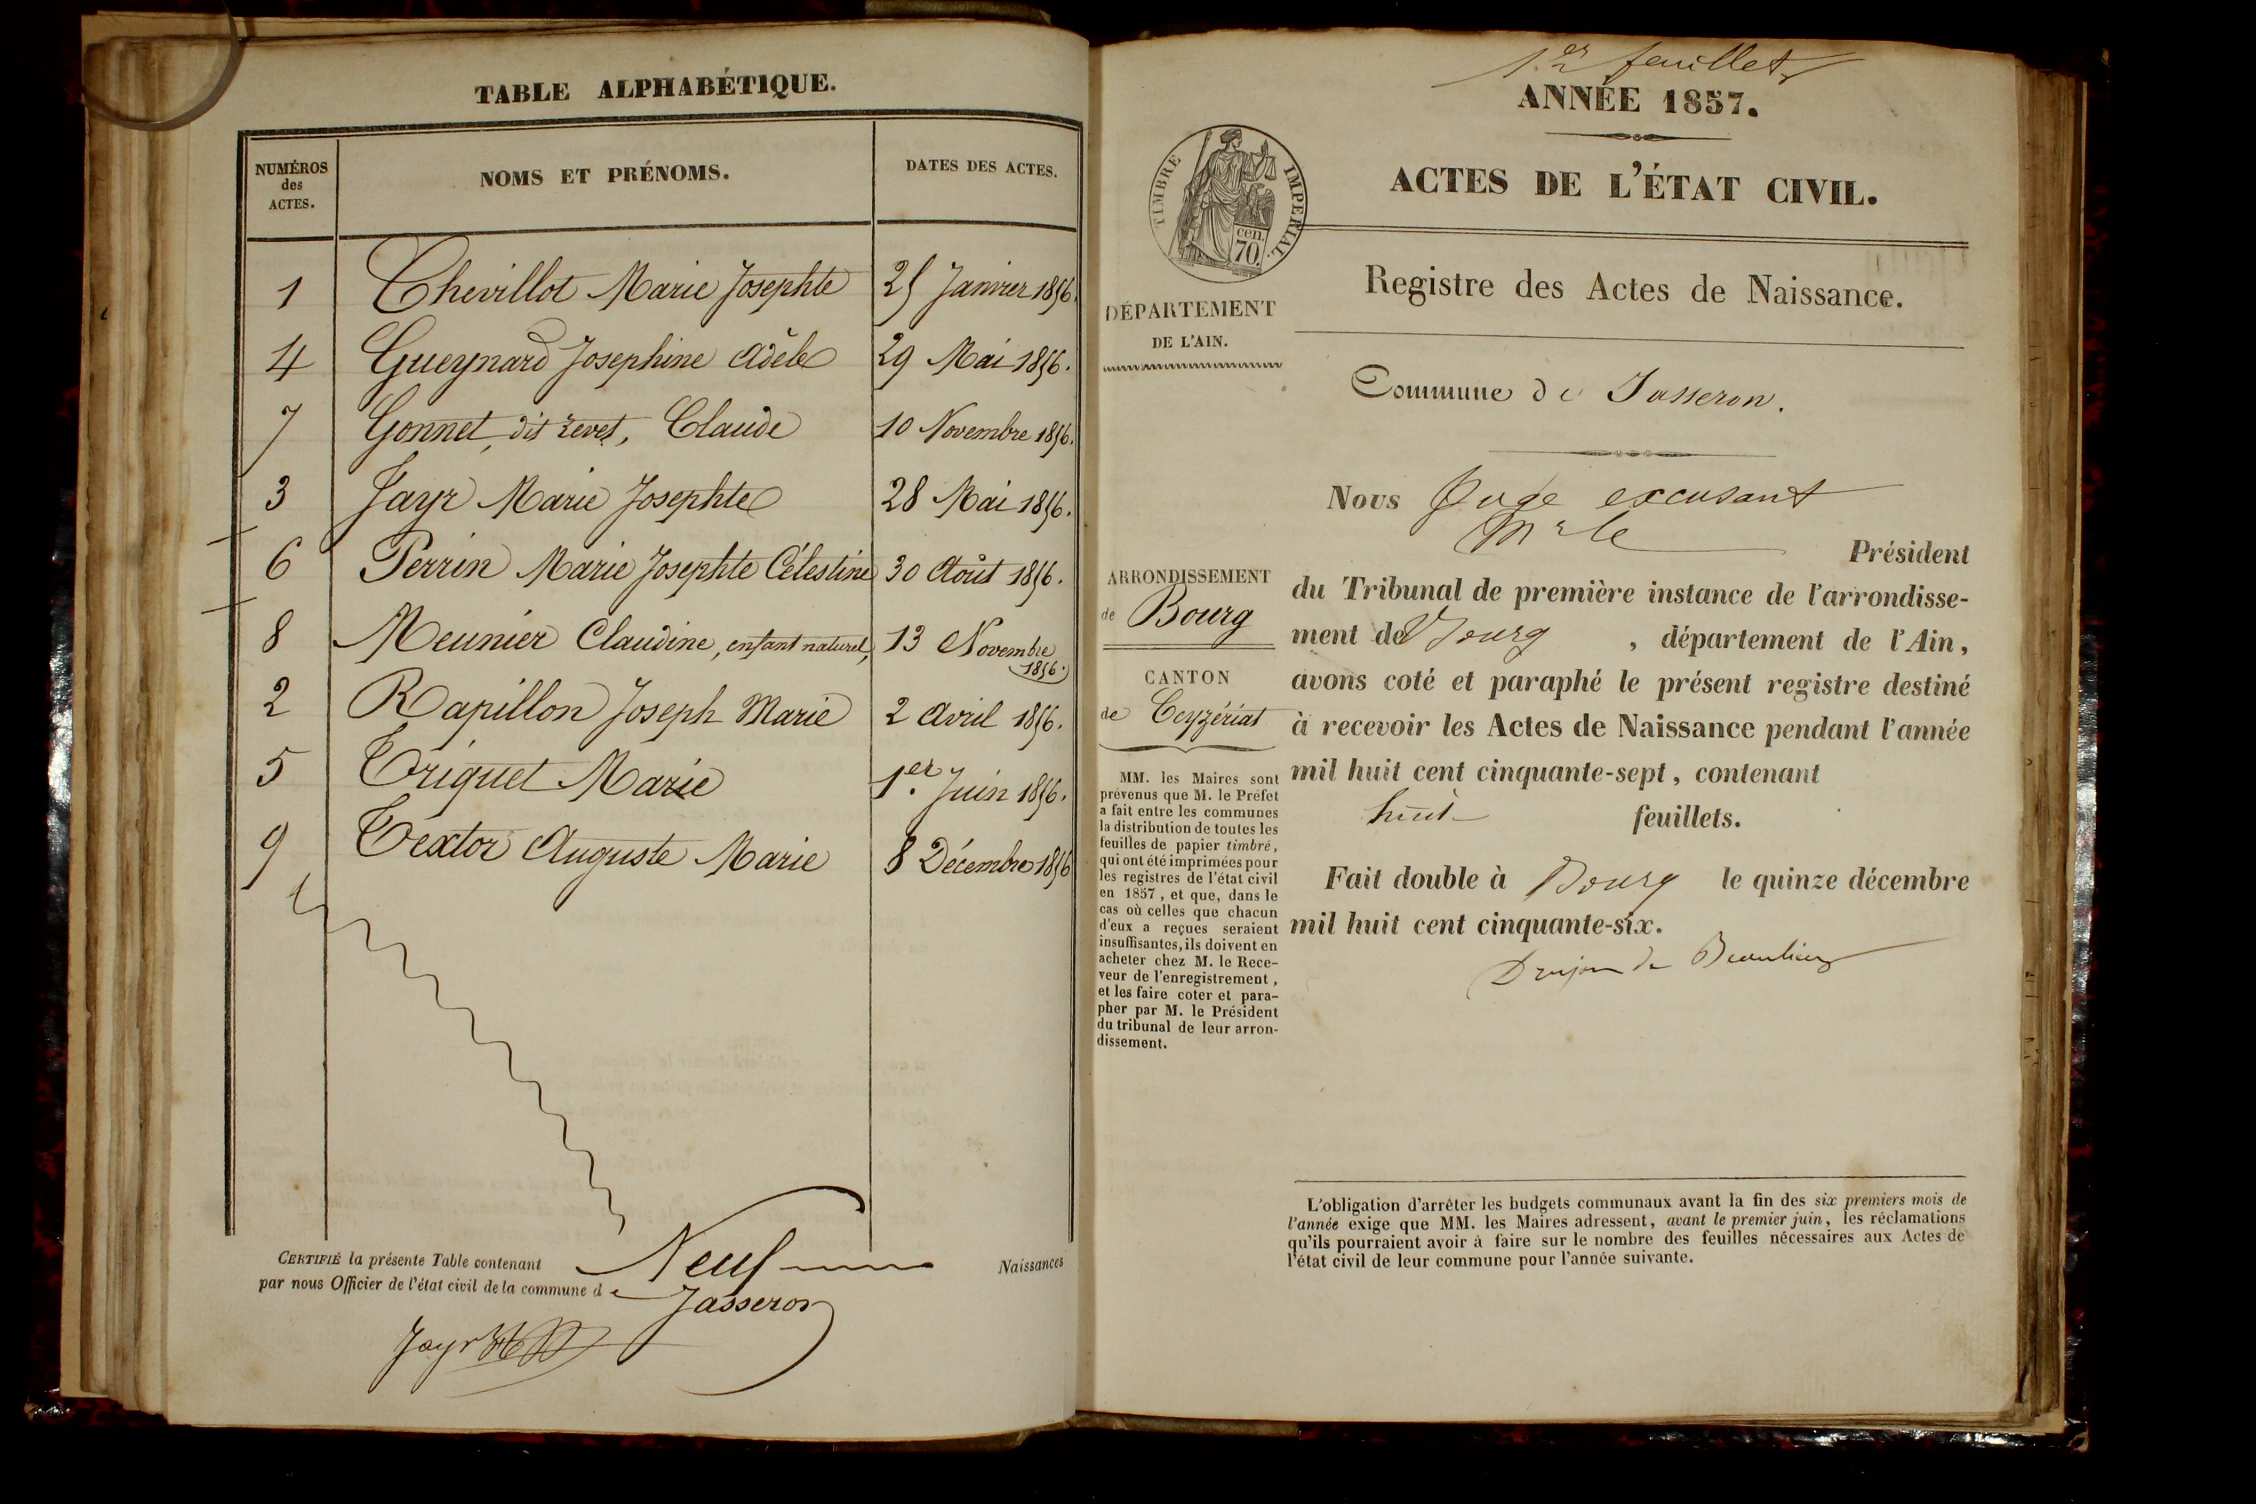 TABLE ALPHABÉTIQUE.
NUMÉROS des ACTES.
NOMS ET PRÉNOMS.
DATES DES ACTES.
1 Chevillot Marie Josephte 25 Janvier 1856.
4 Gueynard Josephine Adèle 29 Mai 1856.
7 Gonnet, dit revet, Claude 10 Novembre 1856.
3 Jayr Marie Josephte 28 Mai 1856.
6 Perrin Marie Josephte Célestine 30 Août 1856.
8 Meunier Claudine, enfant naturel, 13 Novembre
1856.
2 Rapillon Joseph Marie 2 Avril 1856.
5 Triquet Marie 1er. Juin 1856.
9 Textor Auguste Marie 8 Décembre 1856
CERTIFIÉ la présente Table contenant Neuf Naissances
par nous Officier de l'état civil de la commune de Jasseron
Jayr
1er feuillet
ANNÉE 1857.
TIMBRE IMPERIAL.
cen.
70.
ACTES DE L'ÉTAT CIVIL.
Registre des Actes de Naissance.
DÉPARTEMENT
DE L'AIN.
Commune de Jasseron.
ARRONDISSEMENT
de Bourg
CANTON
de Ceyzériat
MM. les Maires sont
prévenus que M. le Préfet
a fait entre les communes
la distribution de toutes les
feuilles de papier timbré,
qui ont été imprimées pour
les registres de l'état civil
en 1857, et que, dans le
cas où celles que chacun
d'eux a reçues seraient
insuffisantes, ils doivent en
acheter chez M. le Rece-
veur de l'enregistrement,
et les faire coter et para-
pher par M. le Président
du tribunal de leur arron-
dissement.
Nous Juge excusant
Mr le
Président
du Tribunal de première instance de l'arrondisse-
ment de Bourg , département de l'Ain,
avons coté et paraphé le présent registre destiné
à recevoir les Actes de Naissance pendant l'année
mil huit cent cinquante-sept, contenant
huit feuillets.
Fait double à Bourg le quinze décembre
mil huit cent cinquante-six.
Drujon de Beaulieu
L'obligation d'arrêter les budgets communaux avant la fin des six premiers mois de
l'année exige que MM. les Maires adressent, avant le premier juin, les réclamations
qu'ils pourraient avoir à faire sur le nombre des feuilles nécessaires aux Actes de
l'état civil de leur commune pour l'année suivante.